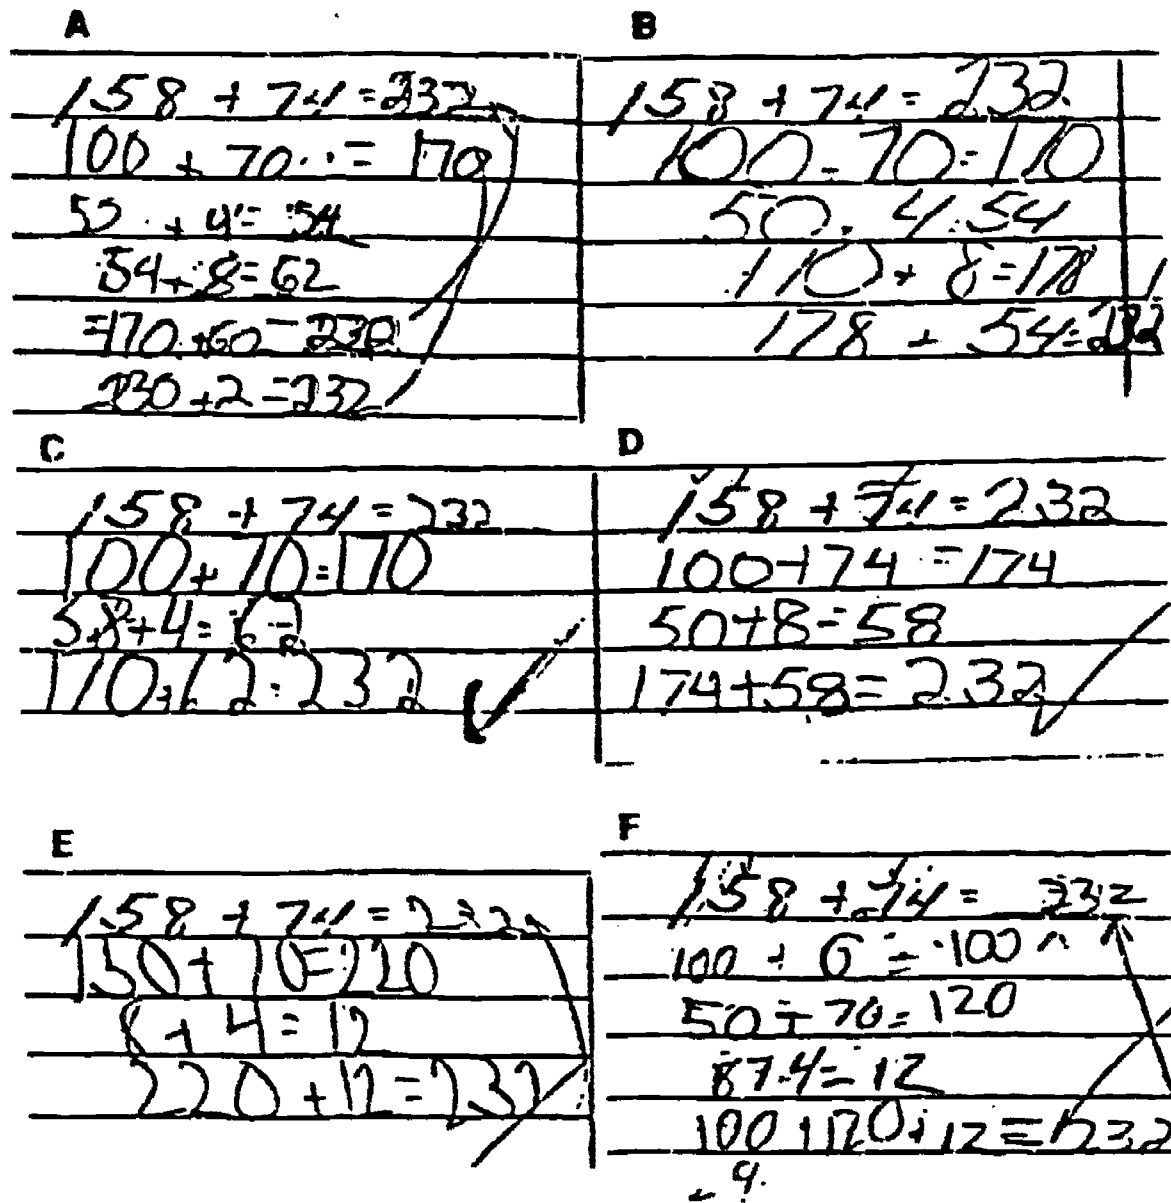 A
158 + 74 = 232
100 + 70 = 170
50 + 4 = 54
54 + 8 = 62
=170 + 60 = 230
230 + 2 = 232
B
158 + 74 = 232
100 - 70 = 170
50 . 4 . 54
170 + 8 = 178
178 + 54 = 232
C
158 + 74 = 232
100 + 70 = 170
58 + 4 = 62
170 + 62 = 232
D
158 + 74 = 232
100 + 74 = 174
50 + 8 = 58
174 + 58 = 232
E
158 + 74 = 232
150 + 70 = 220
8 + 4 = 12
220 + 12 = 232
F
158 + 74 = 232
100 + 0 = 100
50 + 70 = 120
8 + 4 = 12
100 + 120 + 12 = 232